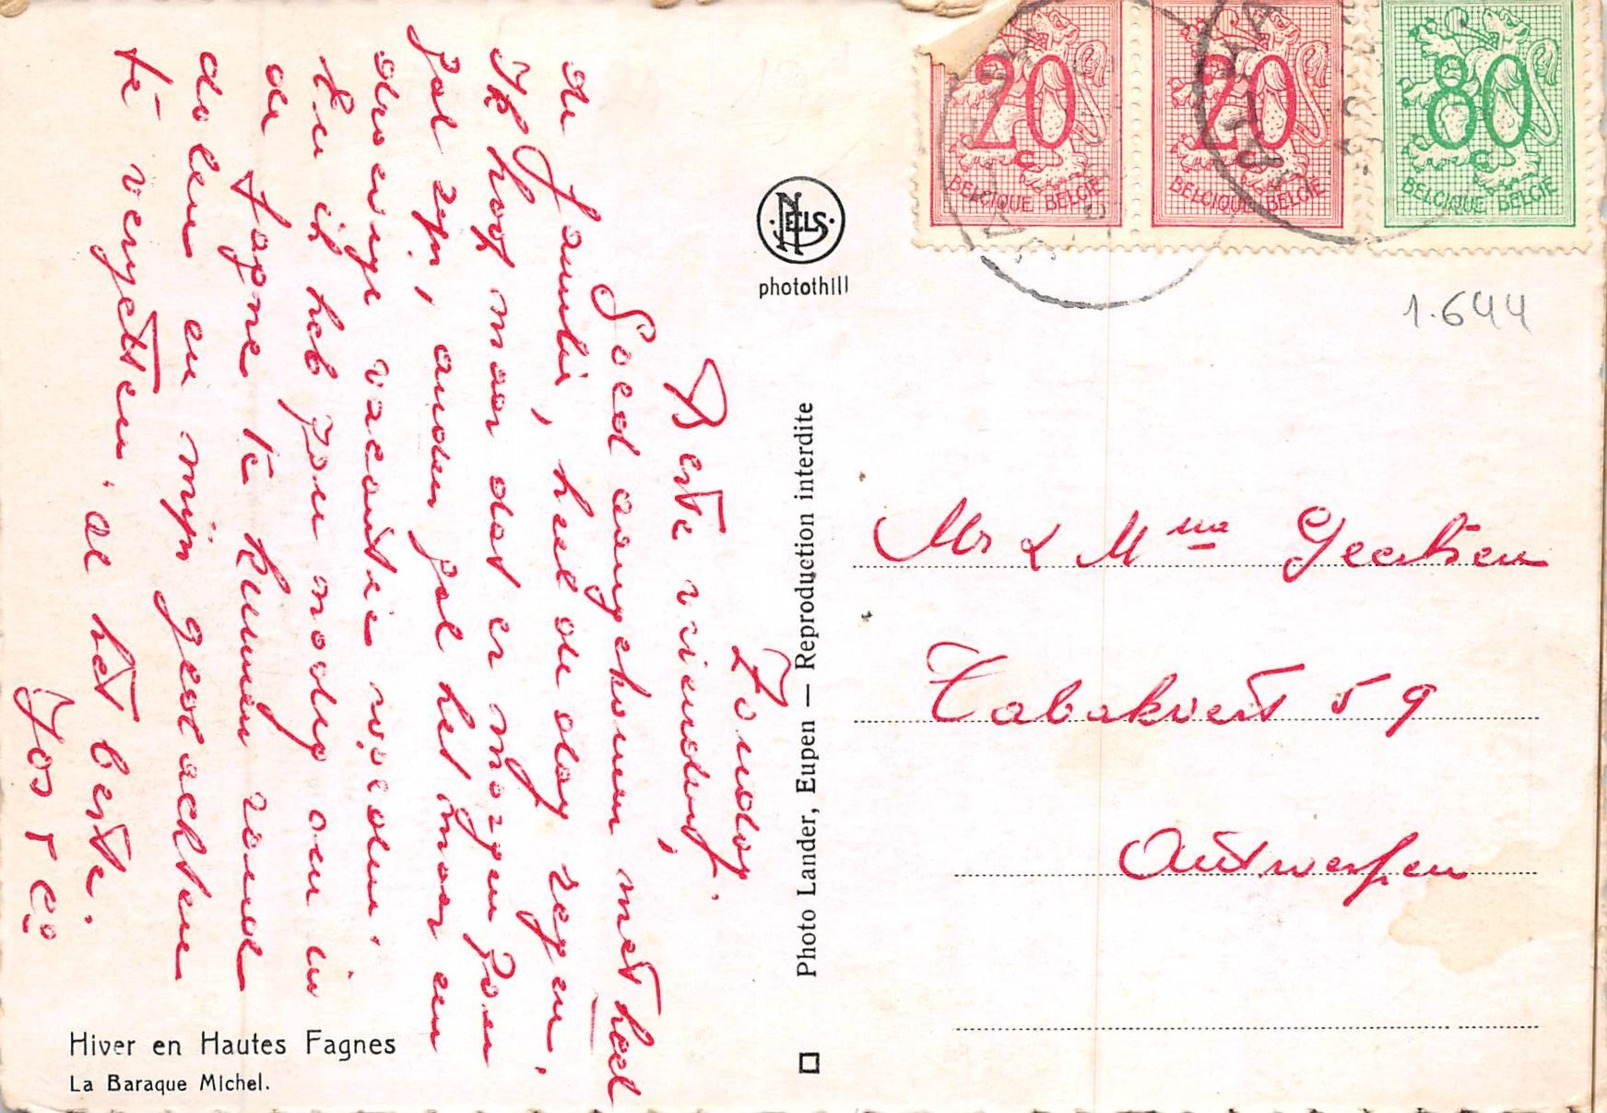 Zondag.
Beste vrienden,
Goed aangekomen met heel
de familie, heel de dag regen,
Ik hoop maar dat er morgen zon
zal zijn, anders zal het maar een
droevige vacantie worden.
En ik heb zon nodig om in
de fagne te kunnen rond
dolen en mijn gedachten
te vergeten. al het beste.
Jos
Hiver en Hautes Fagnes
La Baraque Michel.
NELS
photothill
Photo Lander, Eupen — Reproduction interdite
20 20 80
BELGIQUE BELGIE BELGIQUE BELGIE BELGIQUE BELGIE
1.644
Mr & Mme Geertsen
Tabakvest 59
Antwerpen